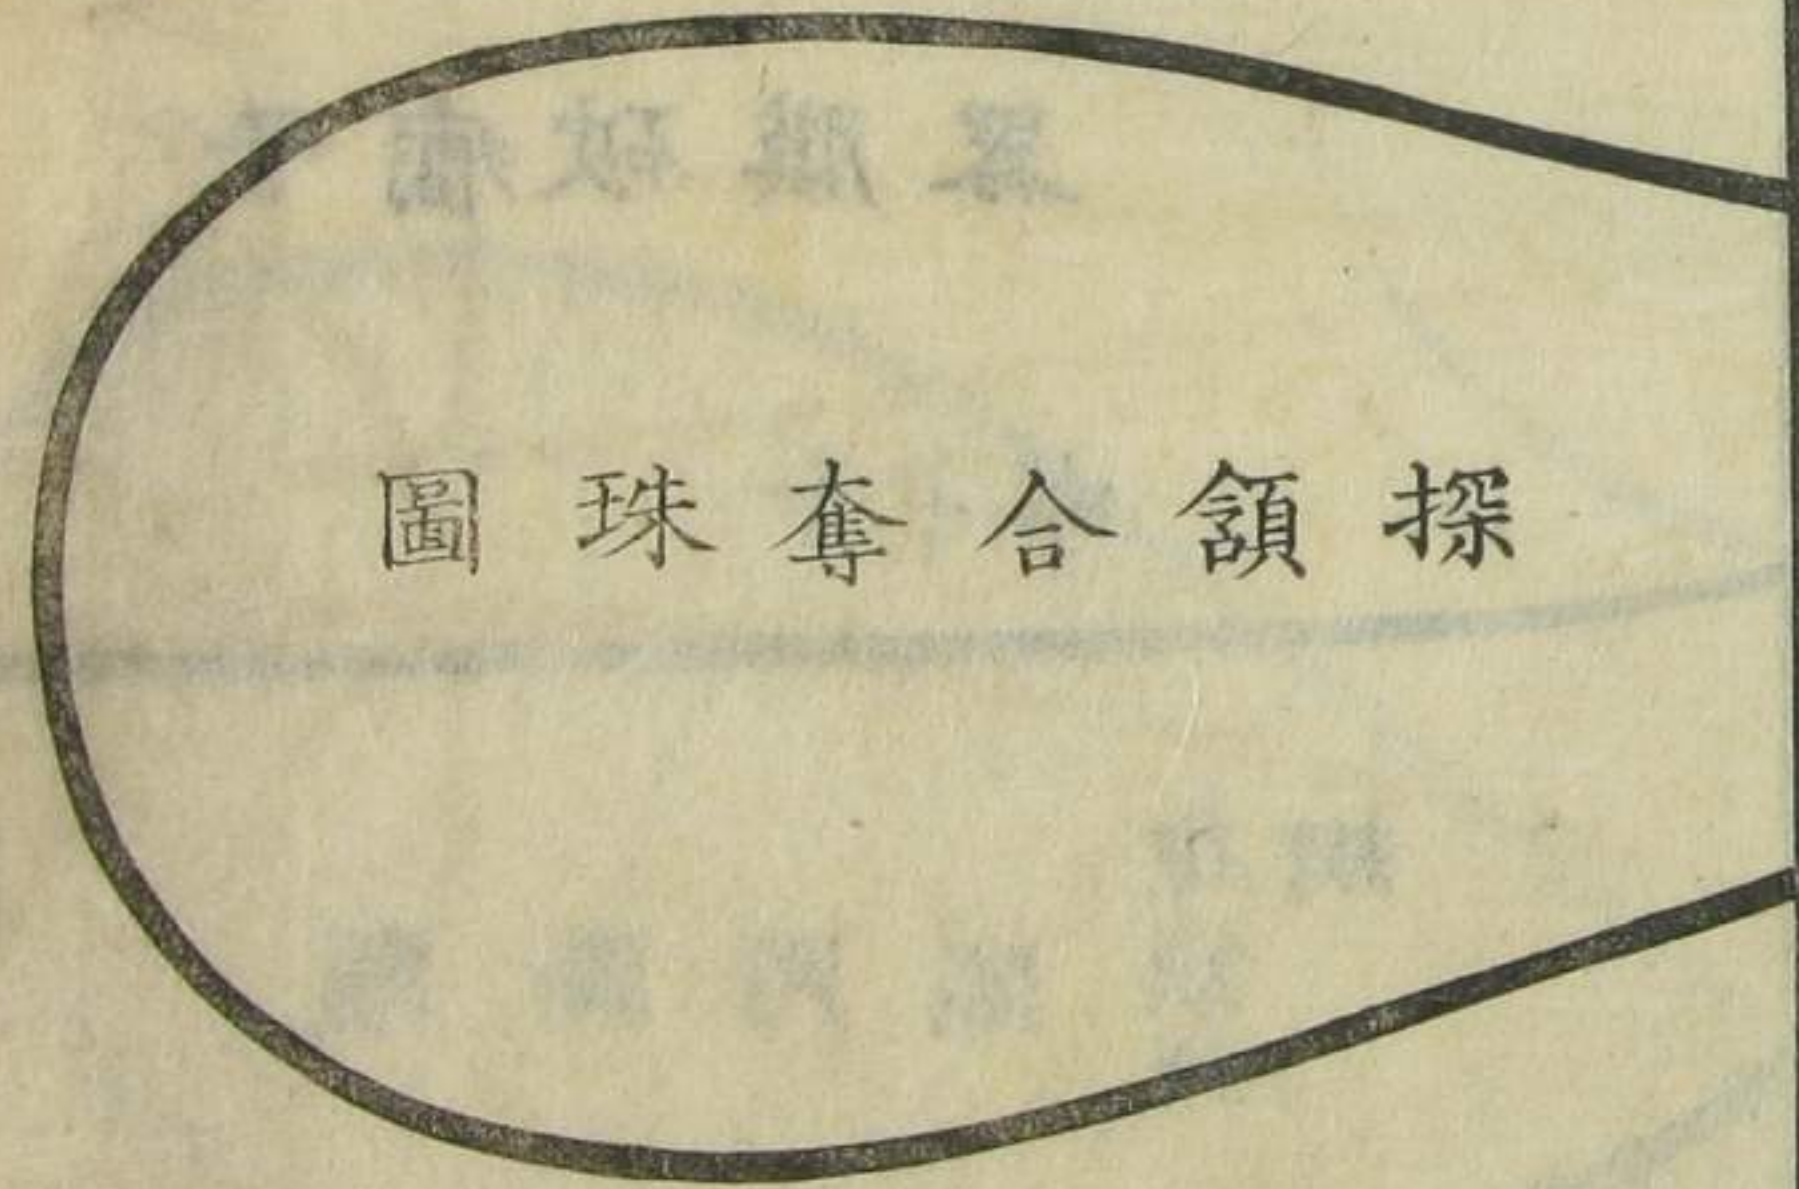 探頷合奪珠圖